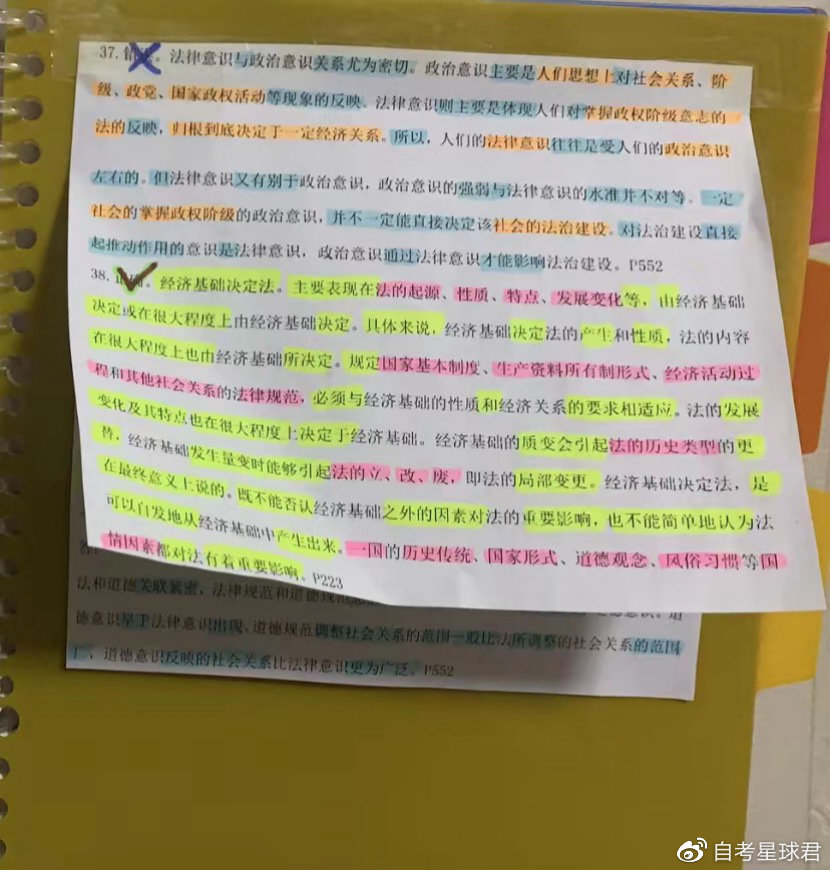 37. 错误。法律意识与政治意识关系尤为密切。政治意识主要是人们思想上对社会关系、阶
级、政党、国家政权活动等现象的反映。法律意识则主要是体现人们对掌握政权阶级意志的
法的反映，归根到底决定于一定经济关系。所以，人们的法律意识往往是受人们的政治意识
左右的。但法律意识又有别于政治意识，政治意识的强弱与法律意识的水准并不对等。一定
社会的掌握政权阶级的政治意识，并不一定能直接决定该社会的法治建设。对法治建设直接
起推动作用的意识是法律意识，政治意识通过法律意识才能影响法治建设。P552
38. 正确。经济基础决定法。主要表现在法的起源、性质、特点、发展变化等，由经济基础
决定或在很大程度上由经济基础决定。具体来说，经济基础决定法的产生和性质，法的内容
在很大程度上也由经济基础所决定。规定国家基本制度、生产资料所有制形式、经济活动过
程和其他社会关系的法律规范，必须与经济基础的性质和经济关系的要求相适应。法的发展
变化及其特点也在很大程度上决定于经济基础。经济基础的质变会引起法的历史类型的更
替，经济基础发生量变时能够引起法的立、改、废，即法的局部变更。经济基础决定法，是
在最终意义上说的。既不能否认经济基础之外的因素对法的重要影响，也不能简单地认为法
可以自发地从经济基础中产生出来。一国的历史传统、国家形式、道德观念、风俗习惯等国
情因素都对法有着重要影响。P223
法和道德关联紧密，法律规范和道德规范
德意识早于法律意识出现、道德规范调整社会关系的范围一般比法所调整的社会关系的范围
广，道德意识反映的社会关系比法律意识更为广泛。P552
@自考星球君